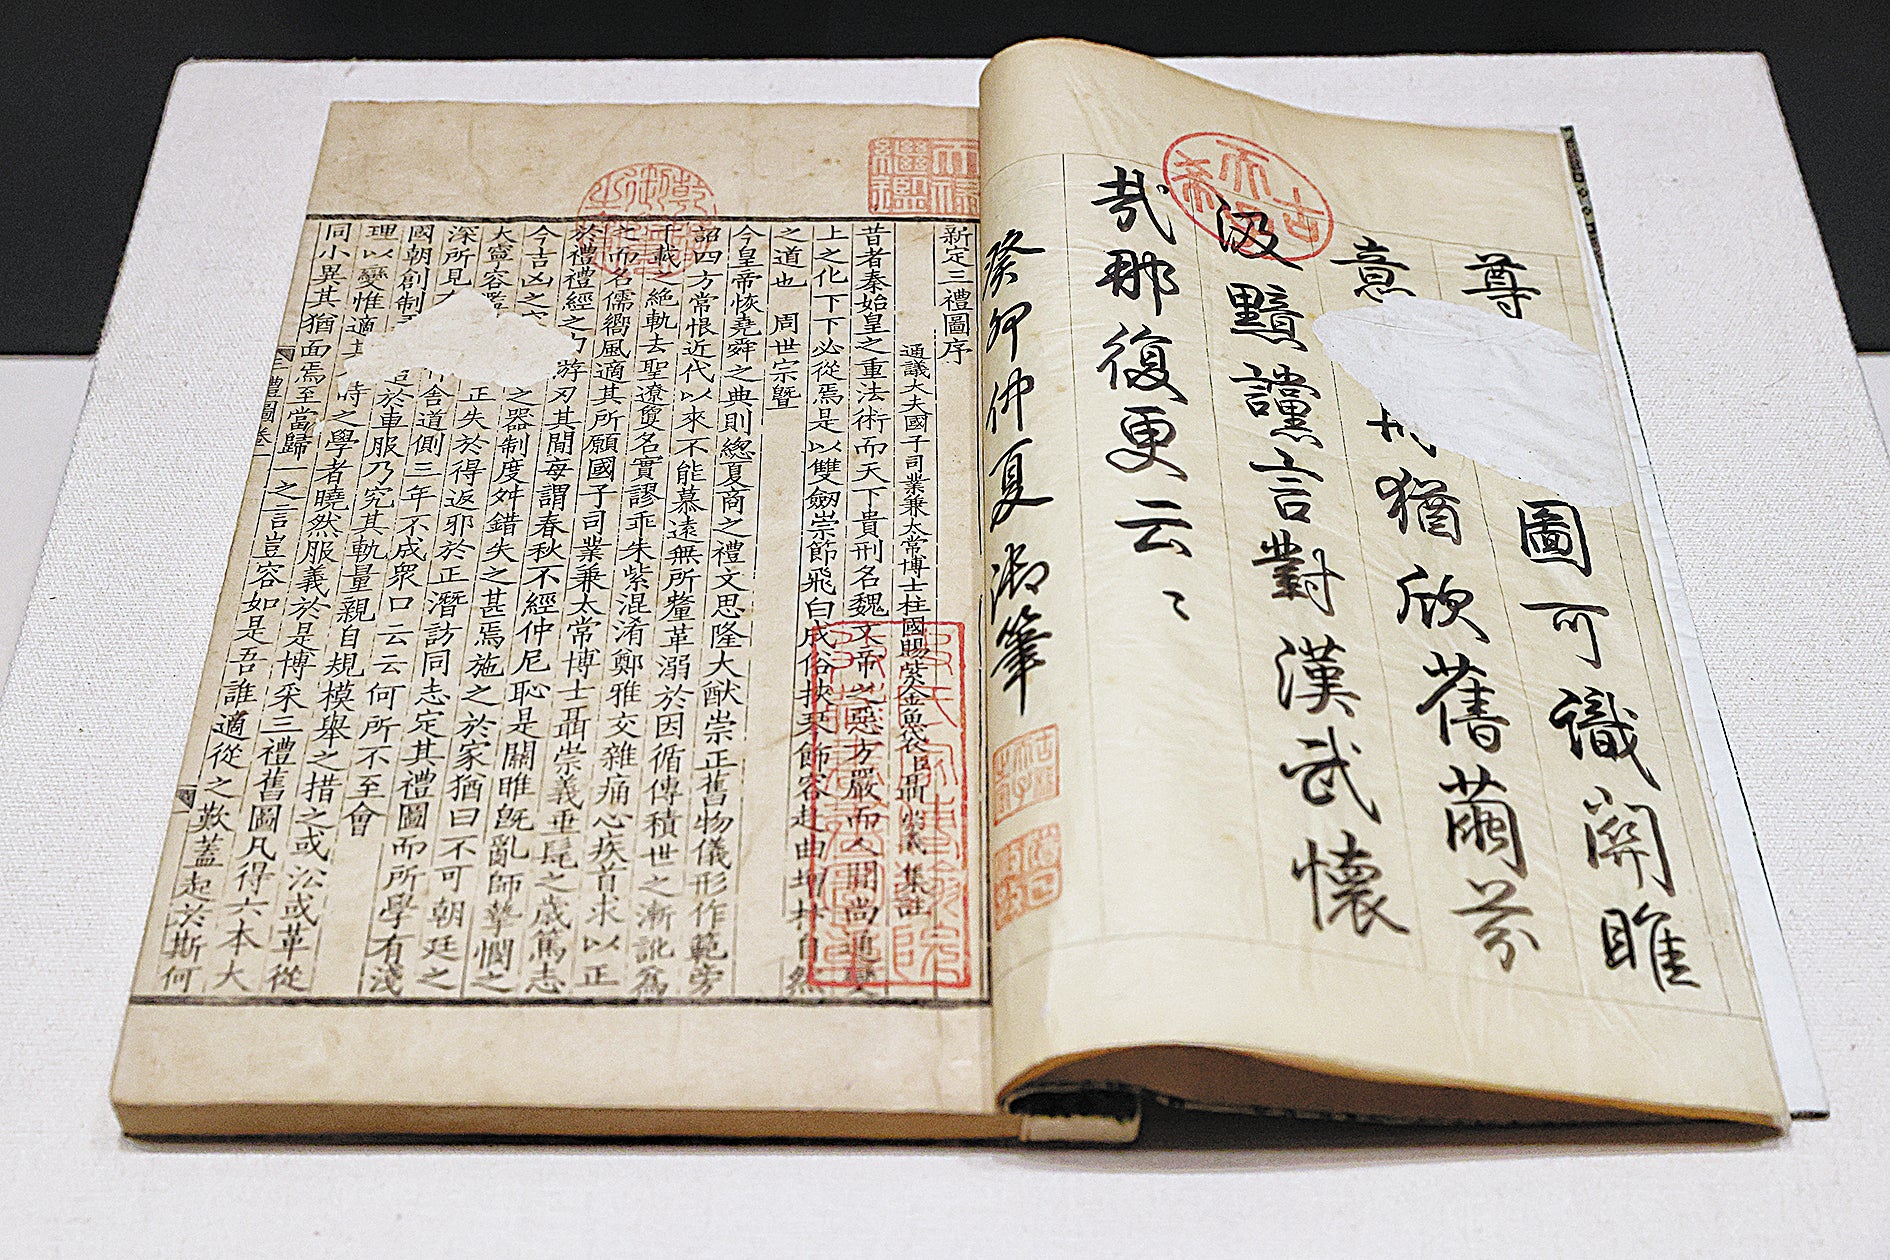 尊 圖可識關睢
意 猶欣舊繭芬
汲黯讜言對漢武懷
哉那復更云〻
癸卯仲夏御筆
新定三禮圖序
通議大夫國子司業兼太常博士柱國賜紫金魚袋臣聶崇義集註
昔者秦始皇之重法術而天下貴刑名魏文帝之惡方嚴而人間尚通變
上之化下下必從焉是以雙劒崇節飛白成俗挾琴飾容赴曲增抃自然
之道也 周世宗暨
今皇帝恢堯舜之典則總夏商之禮文思隆大猷崇正舊物儀形作範旁
詔四方常恨近代以來不能慕遠無所釐革溺於因循傳積世之漸訛爲
千載之絶軌去聖遼敻名實謬乖朱紫混淆鄭雅交雜痛心疾首求以正
之而名儒嚮風適其所願國子司業兼太常博士聶崇義垂髦之歳篤志
於禮禮經之內游刃其間每謂春秋不經仲尼恥是關睢旣亂師摯憫之
今吉凶之 之器制度舛錯失之甚焉施之於家猶曰不可朝廷之
大寧容濫 正失於得返邪於正潛訪同志定其禮圖而所學有淺
深所見 舍道側三年不成衆口云云何所不至會
國朝創制 於車服乃究其軌量親自規模舉之措之或㳂或革從
理以變惟適其 時之學者曉然服義於是博采三禮舊圖凡得六本大
同小異其猶面焉至當歸一之言豈容如是吾誰適從之歎蓋起於斯何
三禮圖卷一
古稀天子
天祿繼鑑
乾隆御覽之寶